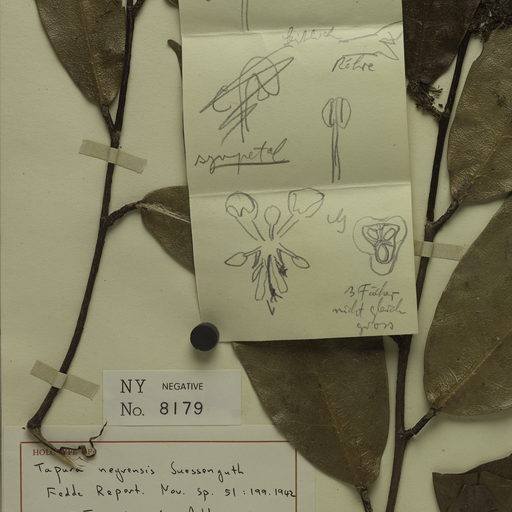 Röhre
sympetal
3 Fächer
nicht gleich
gross
NY NEGATIVE
No. 8179
Tapura negrensis Suessenguth
Fedde Report. Nov. Sp. 51:199.1942